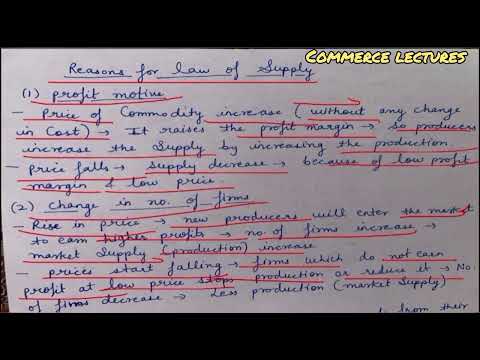 Commerce lectures
Reasons for law of Supply
(1) profit motive
- Price of Commodity increase (without any change
in Cost) → It raises the profit margin → so producers
increase the Supply by increasing the production
- price falls → supply decrease → because of low profit
margin & low price.
(2) Change in no. of firms
- Rise in price → new producers will enter the market
to earn higher profits → no. of firms increase →
market Supply (production) increase
- prices start falling → firms which do not earn
profit at low price stops production or reduce it → No.
of firms decrease → Less production (market Supply)
from their